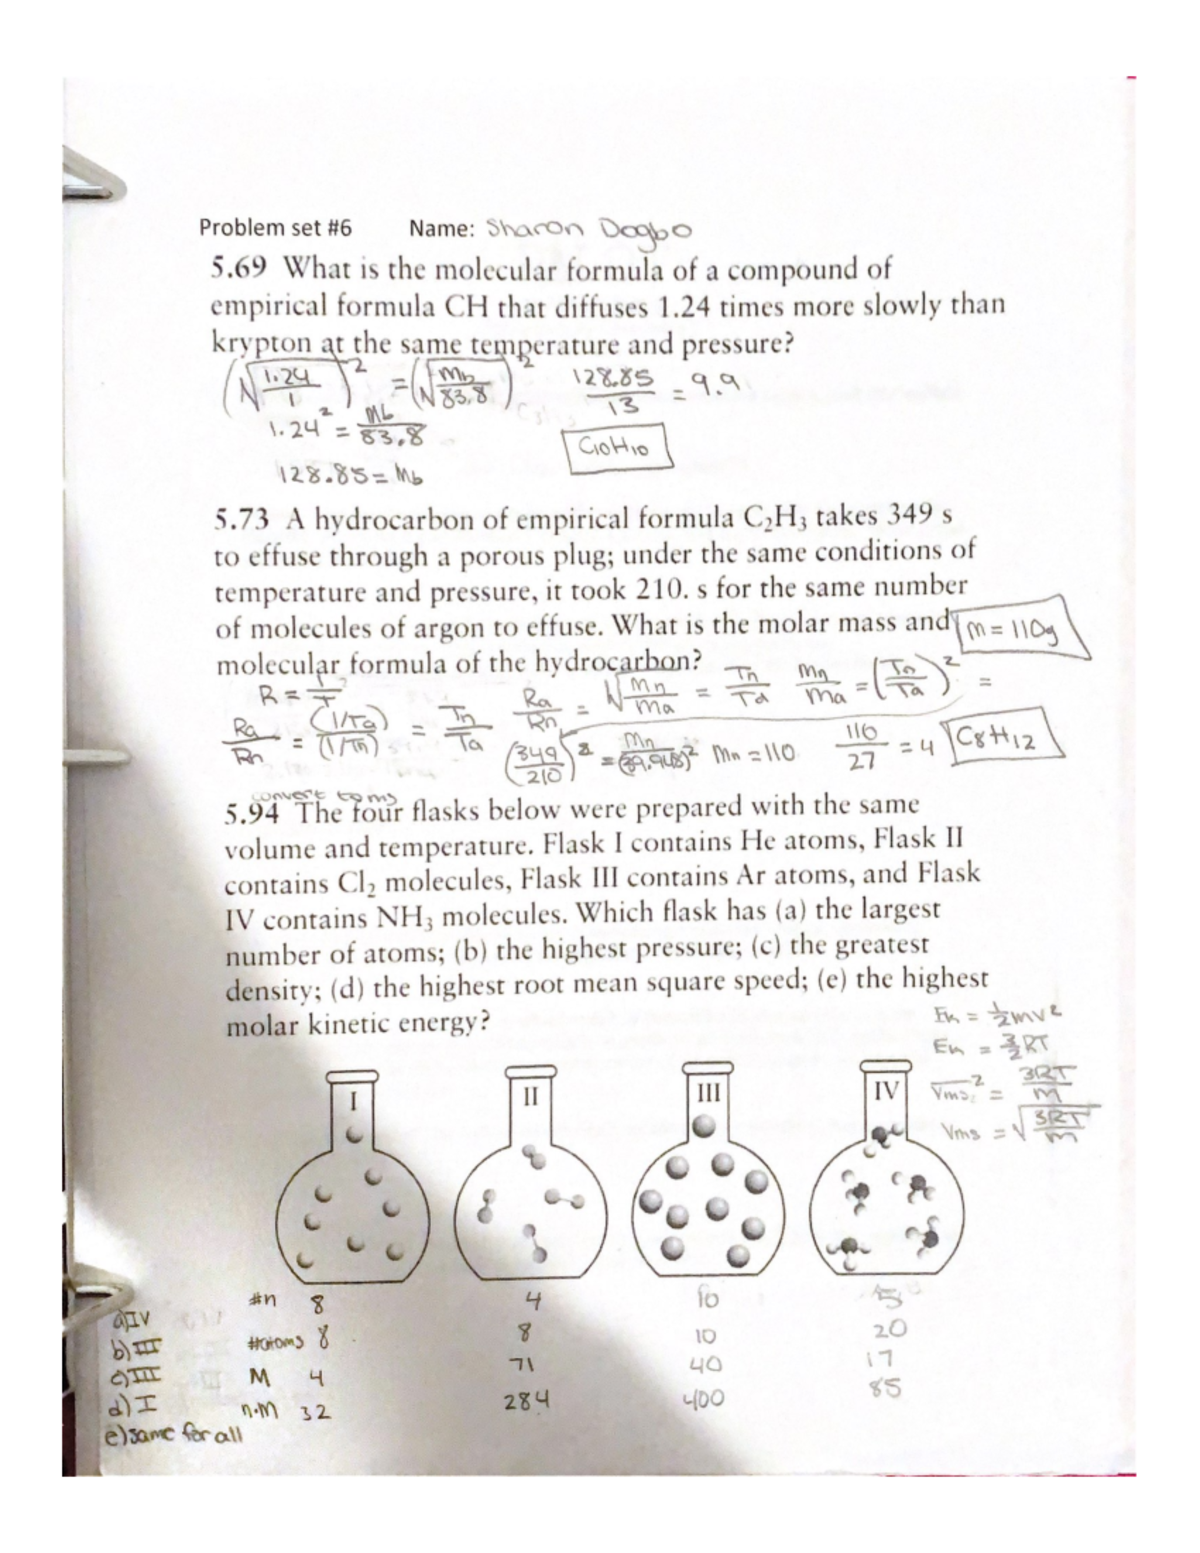 Problem set #6 Name: Sharon Dogbo
5.69 What is the molecular formula of a compound of
empirical formula CH that diffuses 1.24 times more slowly than
krypton at the same temperature and pressure?
(√(1.24/1))² = (√(Mb/83.8))²
128.85/13 = 9.9
1.24² = Mb/83.8
C10H10
128.85 = Mb
5.73 A hydrocarbon of empirical formula C₂H₃ takes 349 s
to effuse through a porous plug; under the same conditions of
temperature and pressure, it took 210. s for the same number
of molecules of argon to effuse. What is the molar mass and
m = 110g
molecular formula of the hydrocarbon?
R = 1/T
Ra/Rn = √(Mn/Ma) = Tn/Ta
Mn/Ma = (Tn/Ta)² =
Ra/Rn = (1/Ta)/(1/Tn) = Tn/Ta
(349/210)² = (Mn/39.948)² Mn = 110
110/27 = 4
C8H12
convert to ms
5.94 The four flasks below were prepared with the same
volume and temperature. Flask I contains He atoms, Flask II
contains Cl₂ molecules, Flask III contains Ar atoms, and Flask
IV contains NH₃ molecules. Which flask has (a) the largest
number of atoms; (b) the highest pressure; (c) the greatest
density; (d) the highest root mean square speed; (e) the highest
molar kinetic energy?
Ek = ½mv²
Ek = 3/2 RT
Vms² = 3RT/m
Vms = √(3RT/m)
I II III IV
#n 8 4 10 5
#atoms 8 8 10 20
M 4 71 40 17
n·M 32 284 400 85
a) IV
b) III
c) III
d) I
e) same for all